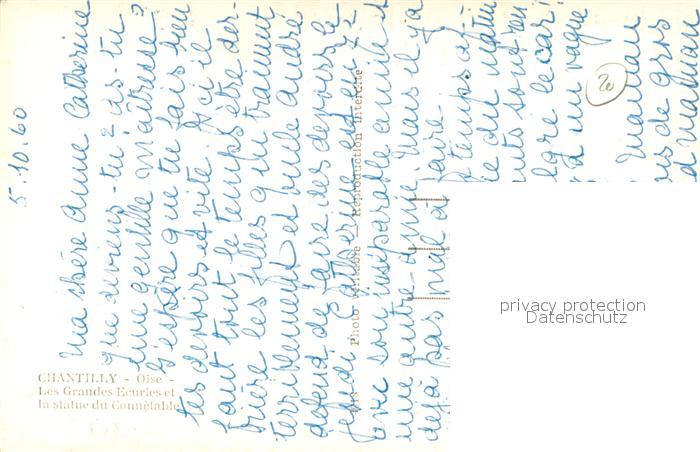 5.10.60
Ma chère Anne Catherine
que deviens-tu? as-tu
une gentille maîtresse?
J'espère que tu fais bien
tes devoirs et vite. Ici il
faut tout le temps être der-
rière les filles qui traînent
terriblement et oncle André
défend de faire des devoirs le
jeudi. Catherine est en 7e
avec son inséparable amie et
une autre amie. Mais il y a
déjà pas mal à faire.
temps a
ie du matin
nts sont
lgré le car
a un vague
Maman
ris de gros
d maman
20
CHANTILLY - Oise -
Les Grandes Ecuries et
la statue du Connétable
Photo véritable — Reproduction interdite
privacy protection
Datenschutz